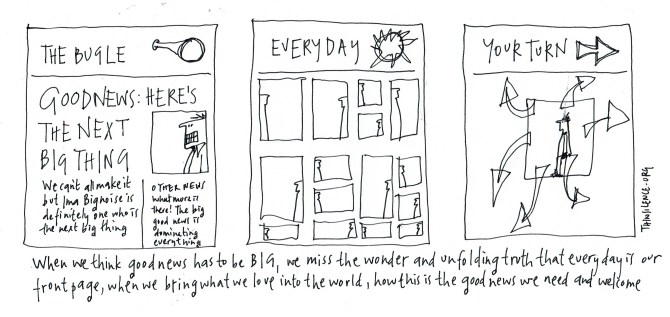 THE BUGLE
GOODNEWS: HERE'S
THE NEXT
BIG THING
We can't all make it
but Ima Bignoise is
definitely one who is
the next big thing
OTHER NEWS
What more is
there! The big
good news is
dominating
everything
EVERYDAY
YOUR TURN
THINSILENCE.ORG
When we think good news has to be BIG, we miss the wonder and unfolding truth that every day is our
front page, when we bring what we love into the world, how this is the good news we need and welcome